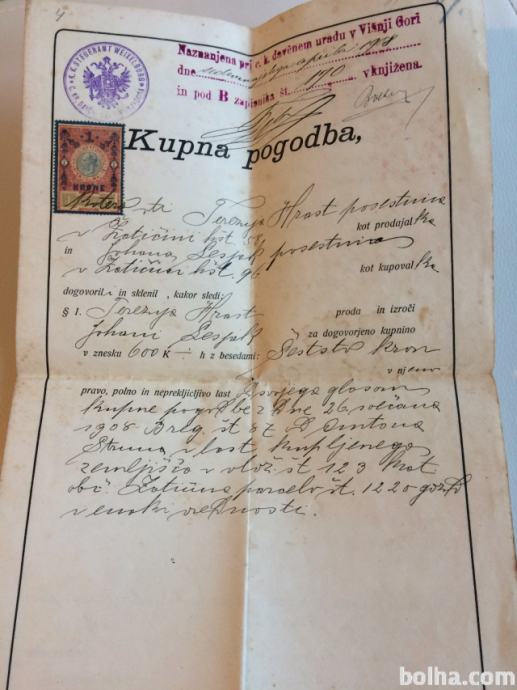 K. K. STEUERAMT WEIXELBURG
Naznanjena pri c. k. davčnem uradu v Višnji Gori
dne 1908
in pod B zapisnika št. 190 vknjižena.
1
KRONE
Kupna pogodba,
Terezija Hrast posestnica
v Zatičini hšt. kot prodajalka
in Johana Lesjak posestnica
v Zatičini hšt. 96 kot kupovalka
dogovorili in sklenil, kakor sledi:
§ 1. Terezija Hrast proda in izroči
Johani Lesjak za dogovorjeno kupnino
v znesku 600 K — h z besedami: Šeststo kron
v njeno
pravo, polno in nepreklicljivo last svojega glasom
kupne pogodbe z dne 26. sečana
1908 Breg št 87 Antona
v last kupljenega
zemljišča v vlož. št 123 kat
obč. Zatičina parcelo št. 1220 gozd
v enaki vrednosti.
bolha.com